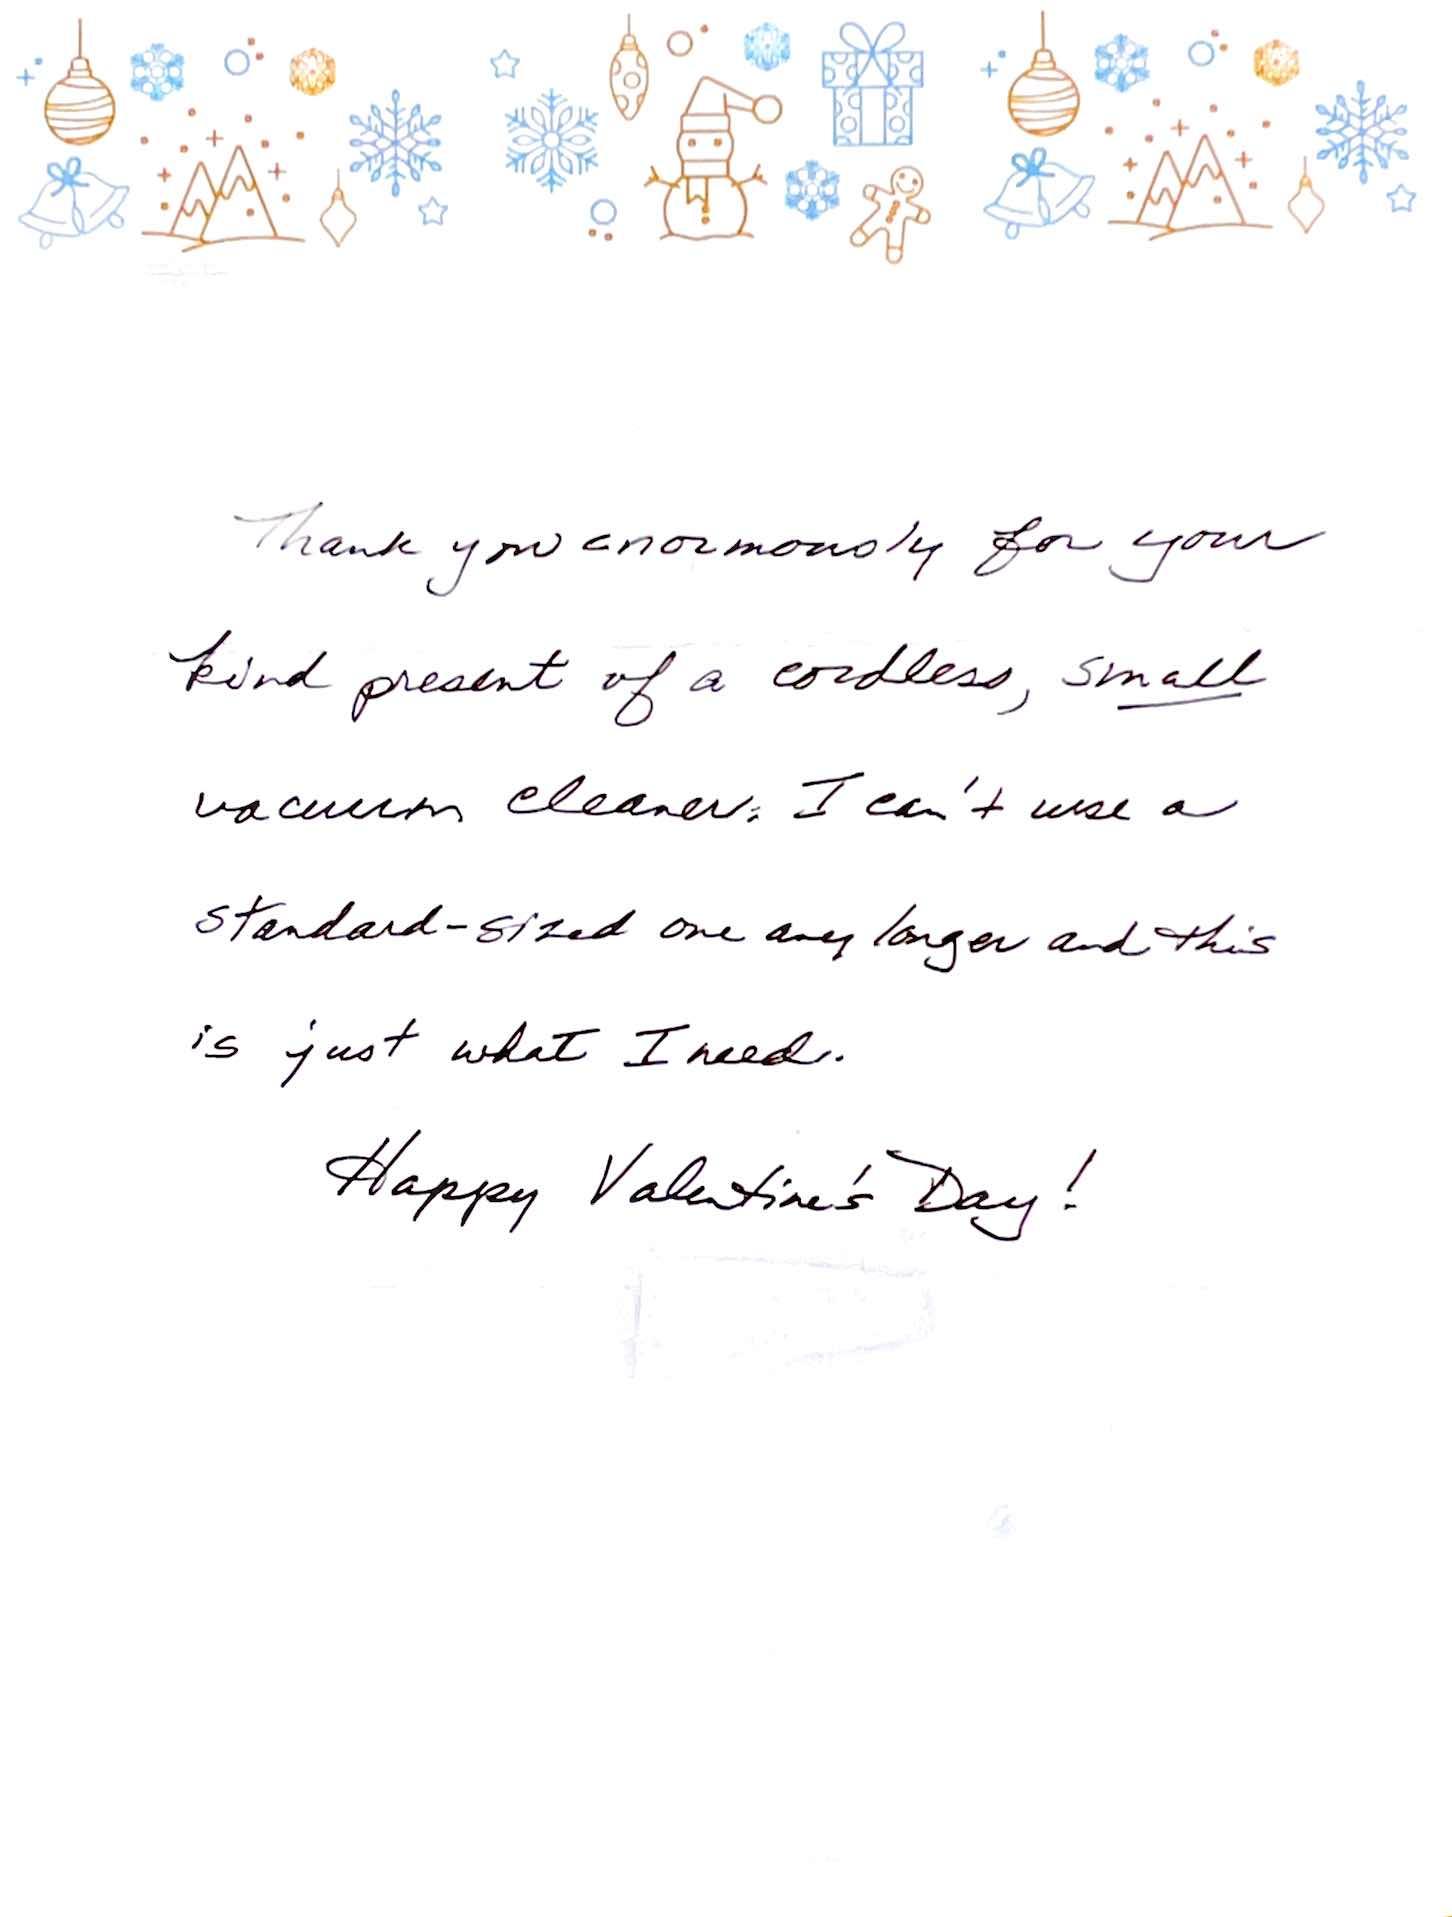 Thank you enormously for your
kind present of a cordless, small
vacuum cleaner. I can't use a
standard-sized one any longer and this
is just what I need.
Happy Valentine's Day!